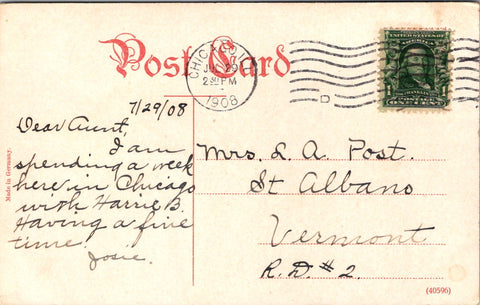 Post Card
CHICAGO, ILL.
JUL 29
2 30 PM
1908
D
UNITED STATES OF AMERICA
FRANKLIN
1 ONE CENT 1
7/29/08
Dear Aunt,
I am
spending a week
here in Chicago
with Harrie B.
Having a fine
time.
Josie.
Mrs. L. A. Post.
St Albans
Vermont
R.D. #2.
Made in Germany.
(40596)